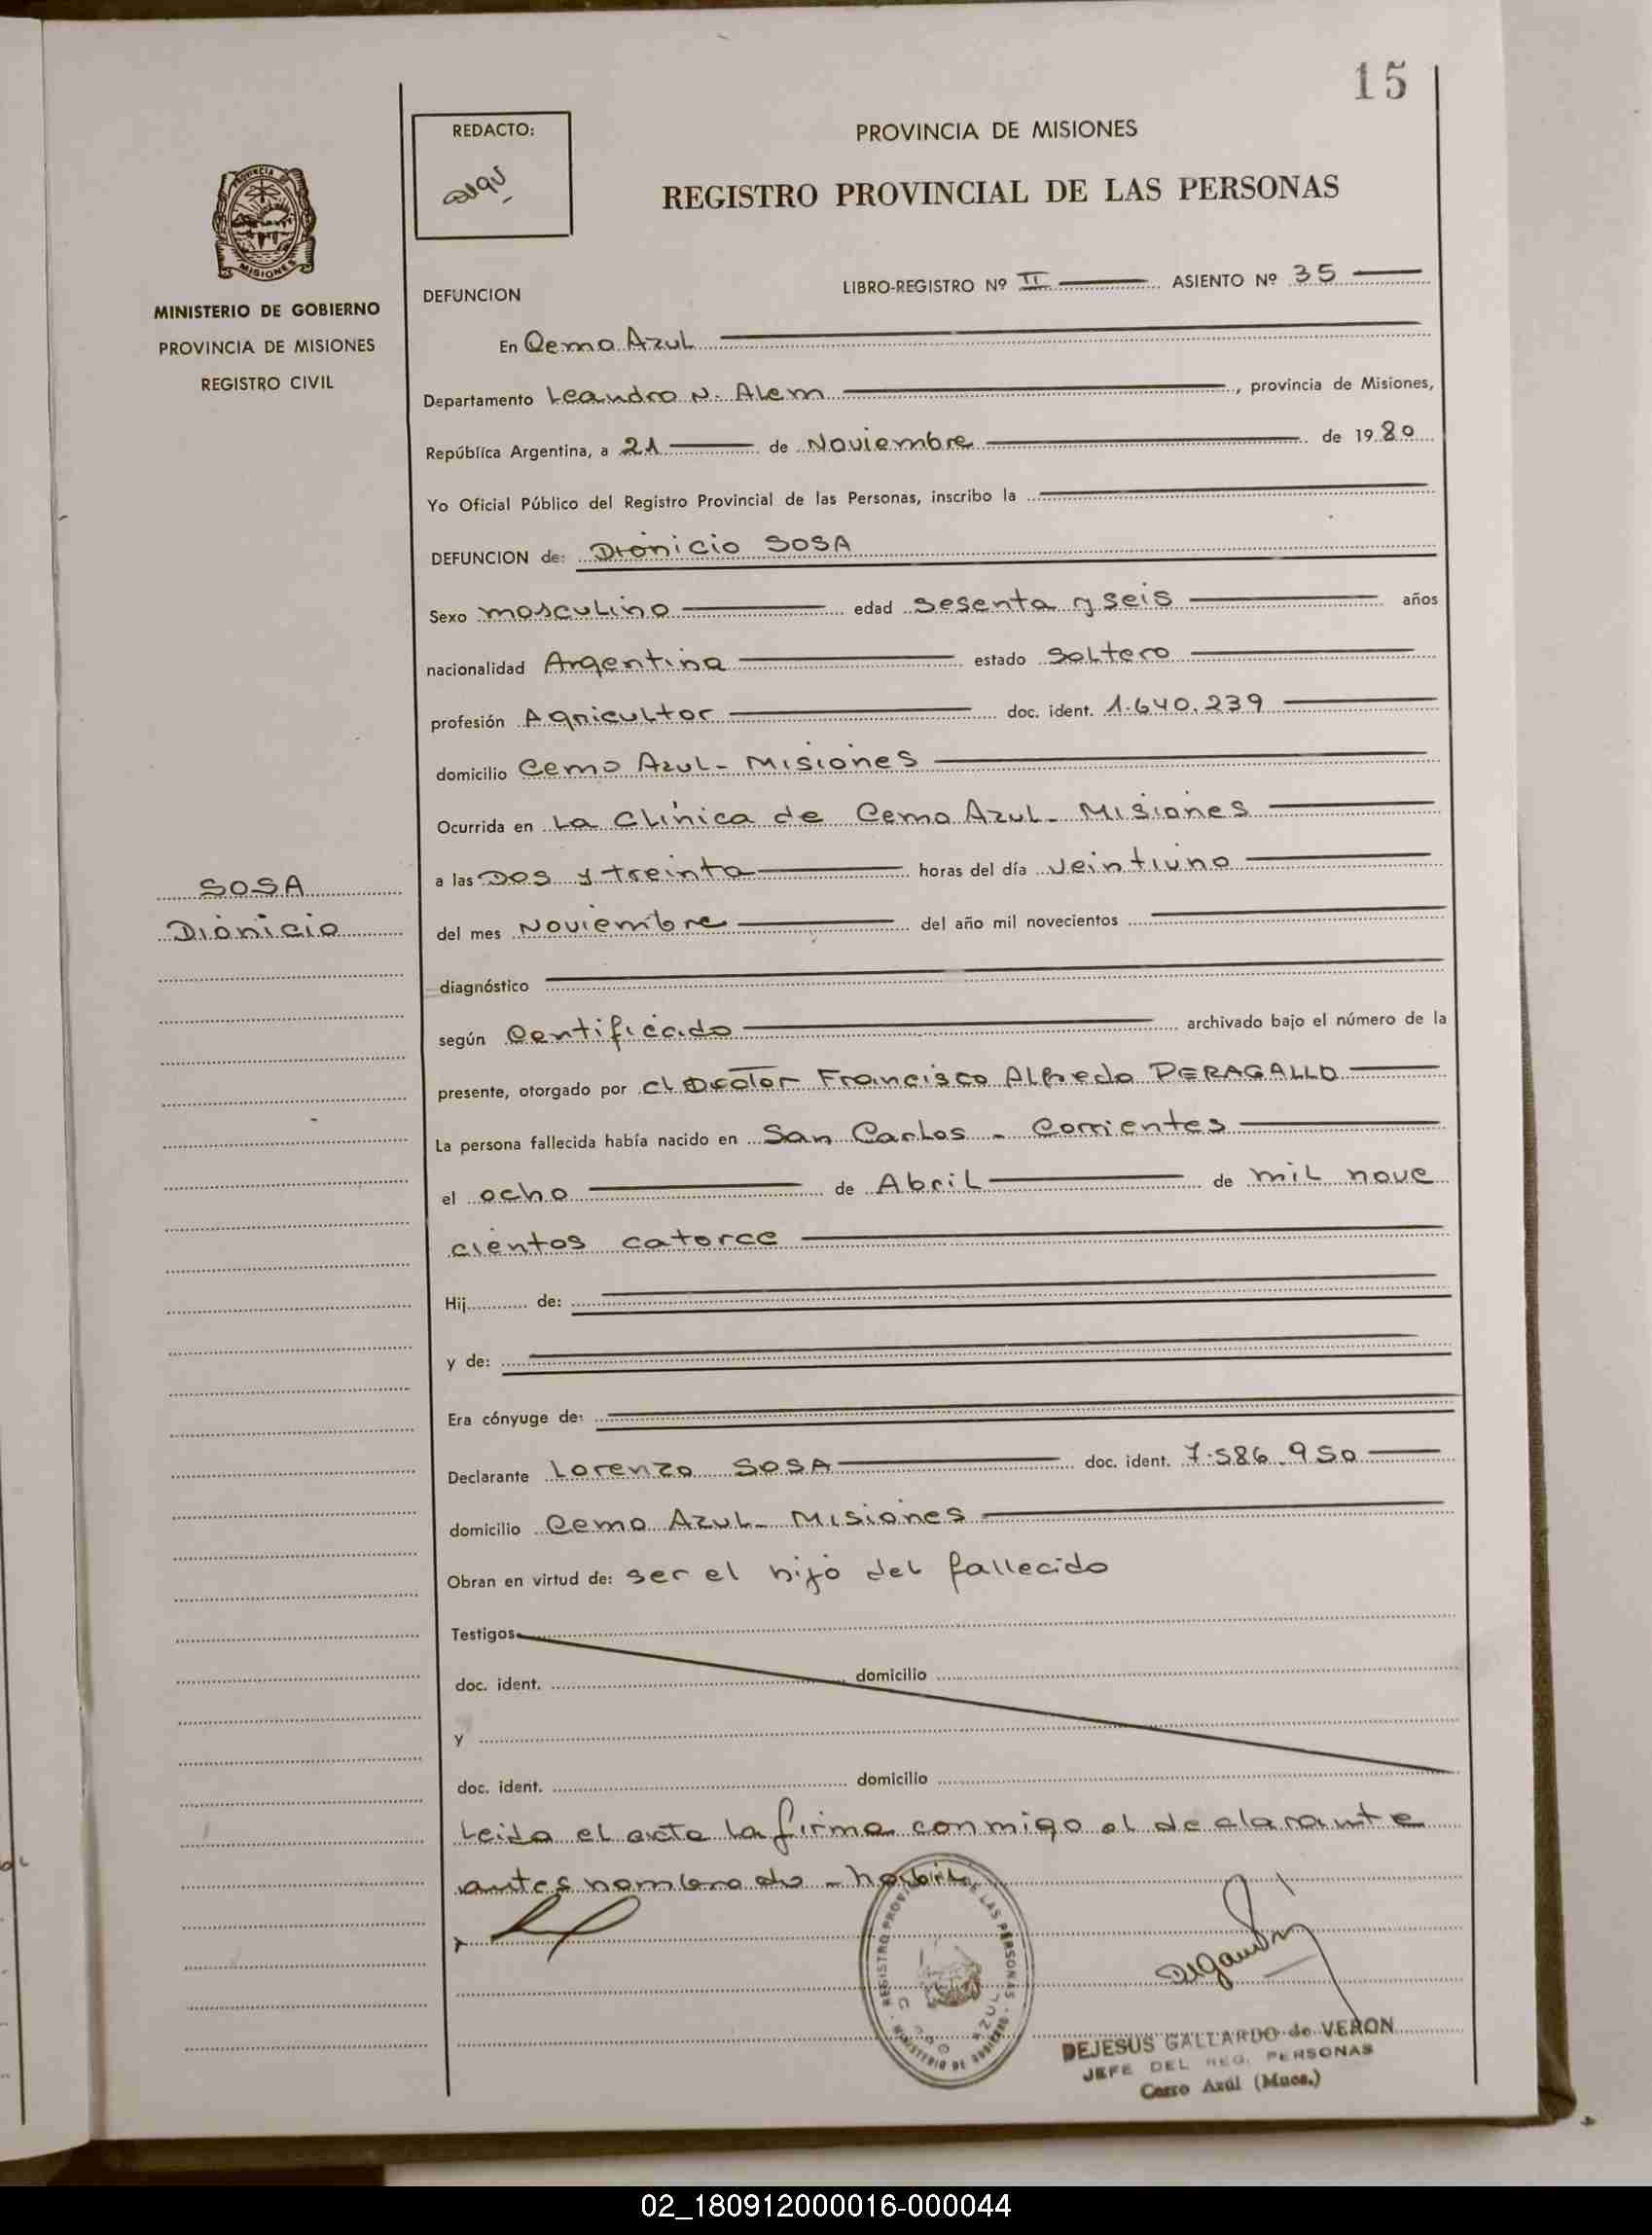 15
REDACTO:
PROVINCIA DE MISIONES
REGISTRO PROVINCIAL DE LAS PERSONAS
PROVINCIA DE
MISIONES
MINISTERIO DE GOBIERNO
PROVINCIA DE MISIONES
REGISTRO CIVIL
DEFUNCION
LIBRO-REGISTRO Nº II ASIENTO Nº 35
En Cerro Azul
Departamento Leandro N. Alem, provincia de Misiones,
República Argentina, a 21 de Noviembre de 1980
Yo Oficial Público del Registro Provincial de las Personas, inscribo la
DEFUNCION de: Dionicio SOSA
Sexo masculino edad sesenta y seis años
nacionalidad Argentina estado Soltero
profesión Agricultor doc. ident. 1.640.239
domicilio Cerro Azul - Misiones
Ocurrida en La Clínica de Cerro Azul - Misiones
a las Dos y treinta horas del día veintiuno
SOSA
Dionicio
del mes Noviembre del año mil novecientos
diagnóstico
según Certificado archivado bajo el número de la
presente, otorgado por el Doctor Francisco Alfredo PERAGALLO
La persona fallecida había nacido en San Carlos - Corrientes
el ocho de Abril de mil nove
cientos catorce
Hij de:
y de:
Era cónyuge de:
Declarante Lorenzo SOSA doc. ident. 7.586.950
domicilio Cerro Azul - Misiones
Obran en virtud de: ser el hijo del fallecido
Testigos
doc. ident. domicilio
y
doc. ident. domicilio
Leida el acta la firma conmigo el declarante
antes nombrado -
REGISTRO PROVINCIAL DE LAS PERSONAS - MINISTERIO DE GOBIERNO
DEJESUS GALLARDO de VERON
JEFE DEL REG. PERSONAS
Cerro Azúl (Mnes.)
02_180912000016-000044